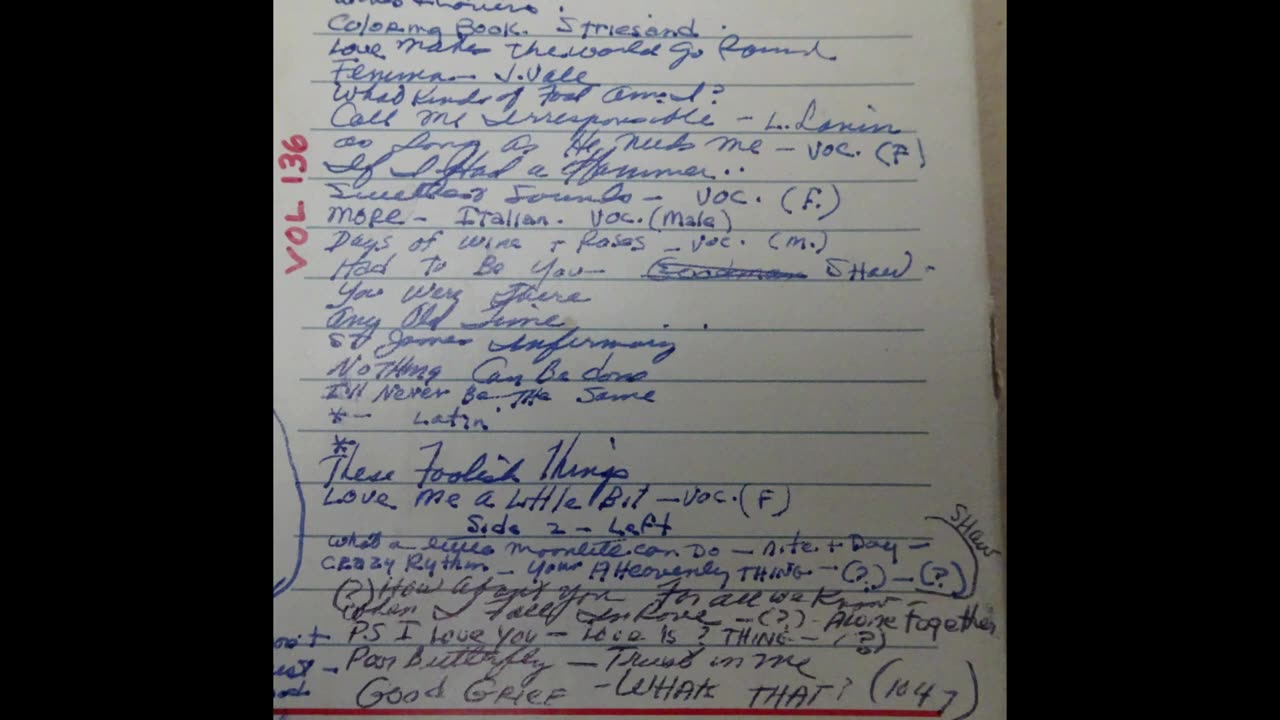 Coloring Book. Striesand.
Love Makes The world Go Round
Femina - J. Vale
What Kind of Fool Am I?
Call Me Irresponsible - L. Lanin
as long as He needs me - voc. (F)
If I Had a Hammer..
Sweetest Sounds - voc. (F.)
MORE - Italian. voc. (Male)
Days of wine + Roses - voc. (m.)
Had To Be You - Goodman Shaw -
You Were There
Any Old Time
St James Infirmary
Nothing Can Be done
I'll Never Be The Same
* - Latin
*
These Foolish Things
Love Me a Little Bit - voc. (F)
Side 2 - Left
What a little moonlite can Do - Nite + Day -
Crazy Rythm - Your A Heavenly THING - (?) - (?)
SHAW
(?) How about you For all we Know -
When I Fall In Love - (?) - Alone Together
P.S I Love You - Love Is ? THING - (?)
Poor Butterfly - Trust in me
Good GRIEF - WHAT THAT? (1047)
VOL 136